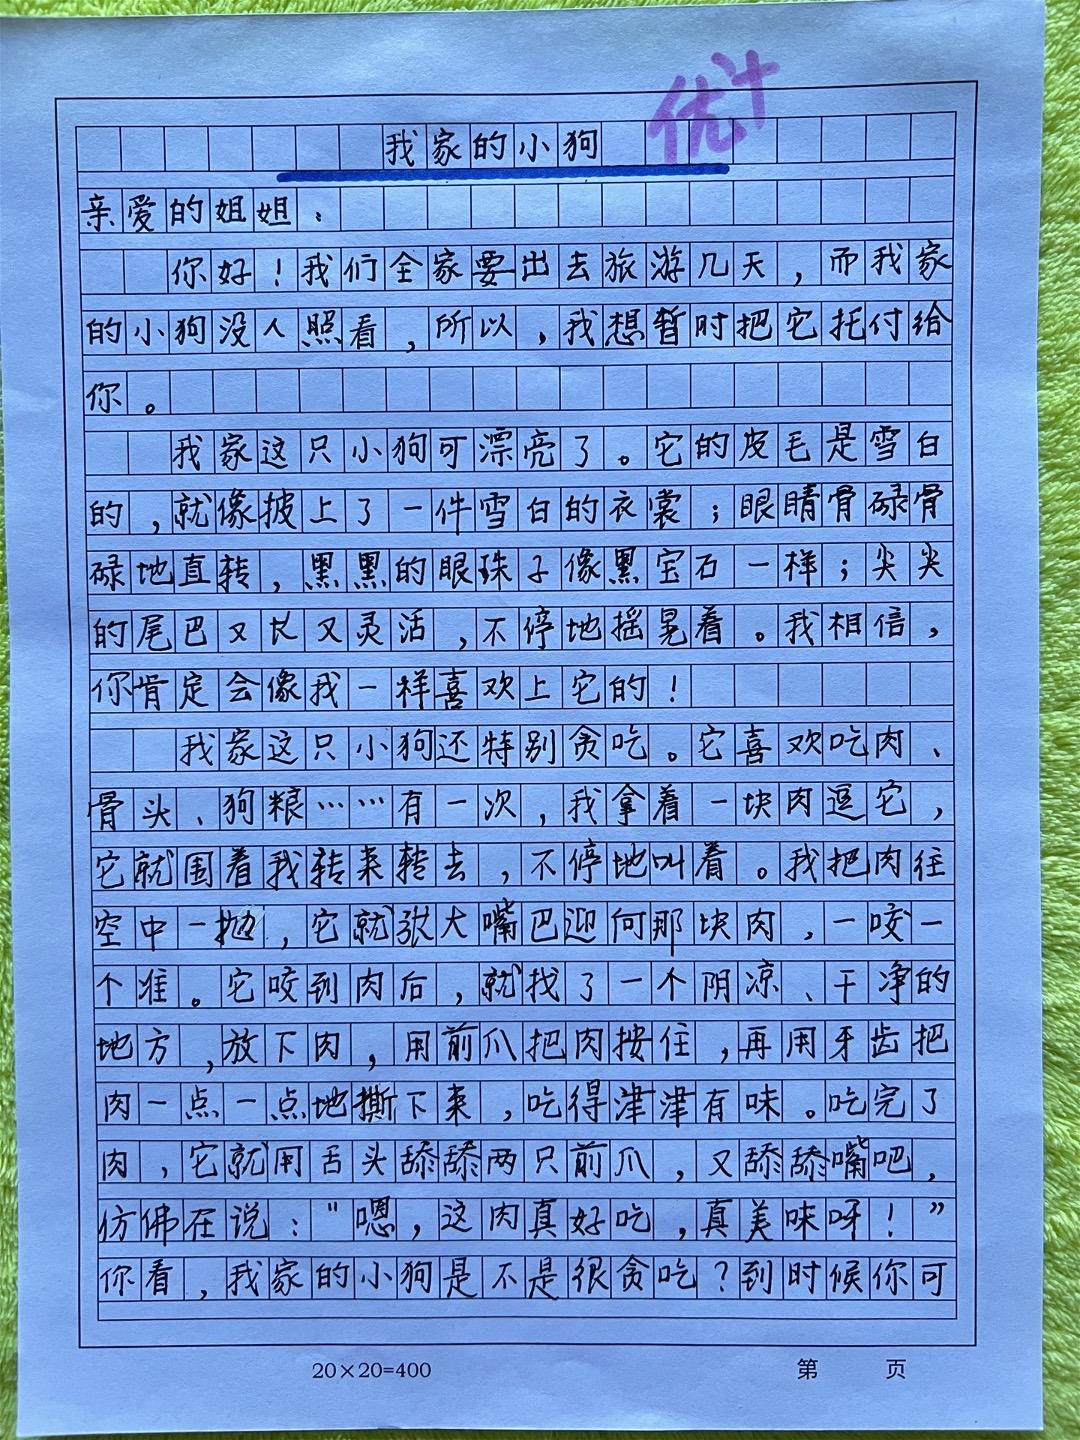 我家的小狗
优+
亲爱的姐姐：
你好！我们全家要出去旅游几天，而我家
的小狗没人照看，所以，我想暂时把它托付给
你。
我家这只小狗可漂亮了。它的皮毛是雪白
的，就像披上了一件雪白的衣裳；眼睛骨碌骨
碌地直转，黑黑的眼珠子像黑宝石一样；尖尖
的尾巴又长又灵活，不停地摇晃着。我相信，
你肯定会像我一样喜欢上它的！
我家这只小狗还特别贪吃。它喜欢吃肉、
骨头、狗粮……有一次，我拿着一块肉逗它，
它就围着我转来转去，不停地叫着。我把肉往
空中一抛，它就张大嘴巴迎向那块肉，一咬一
个准。它咬到肉后，就找了一个阴凉、干净的
地方，放下肉，用前爪把肉按住，再用牙齿把
肉一点一点地撕下来，吃得津津有味。吃完了
肉，它就用舌头舔舔两只前爪，又舔舔嘴吧，
仿佛在说："嗯，这肉真好吃，真美味呀！"
你看，我家的小狗是不是很贪吃？到时候你可
20×20=400
第 页